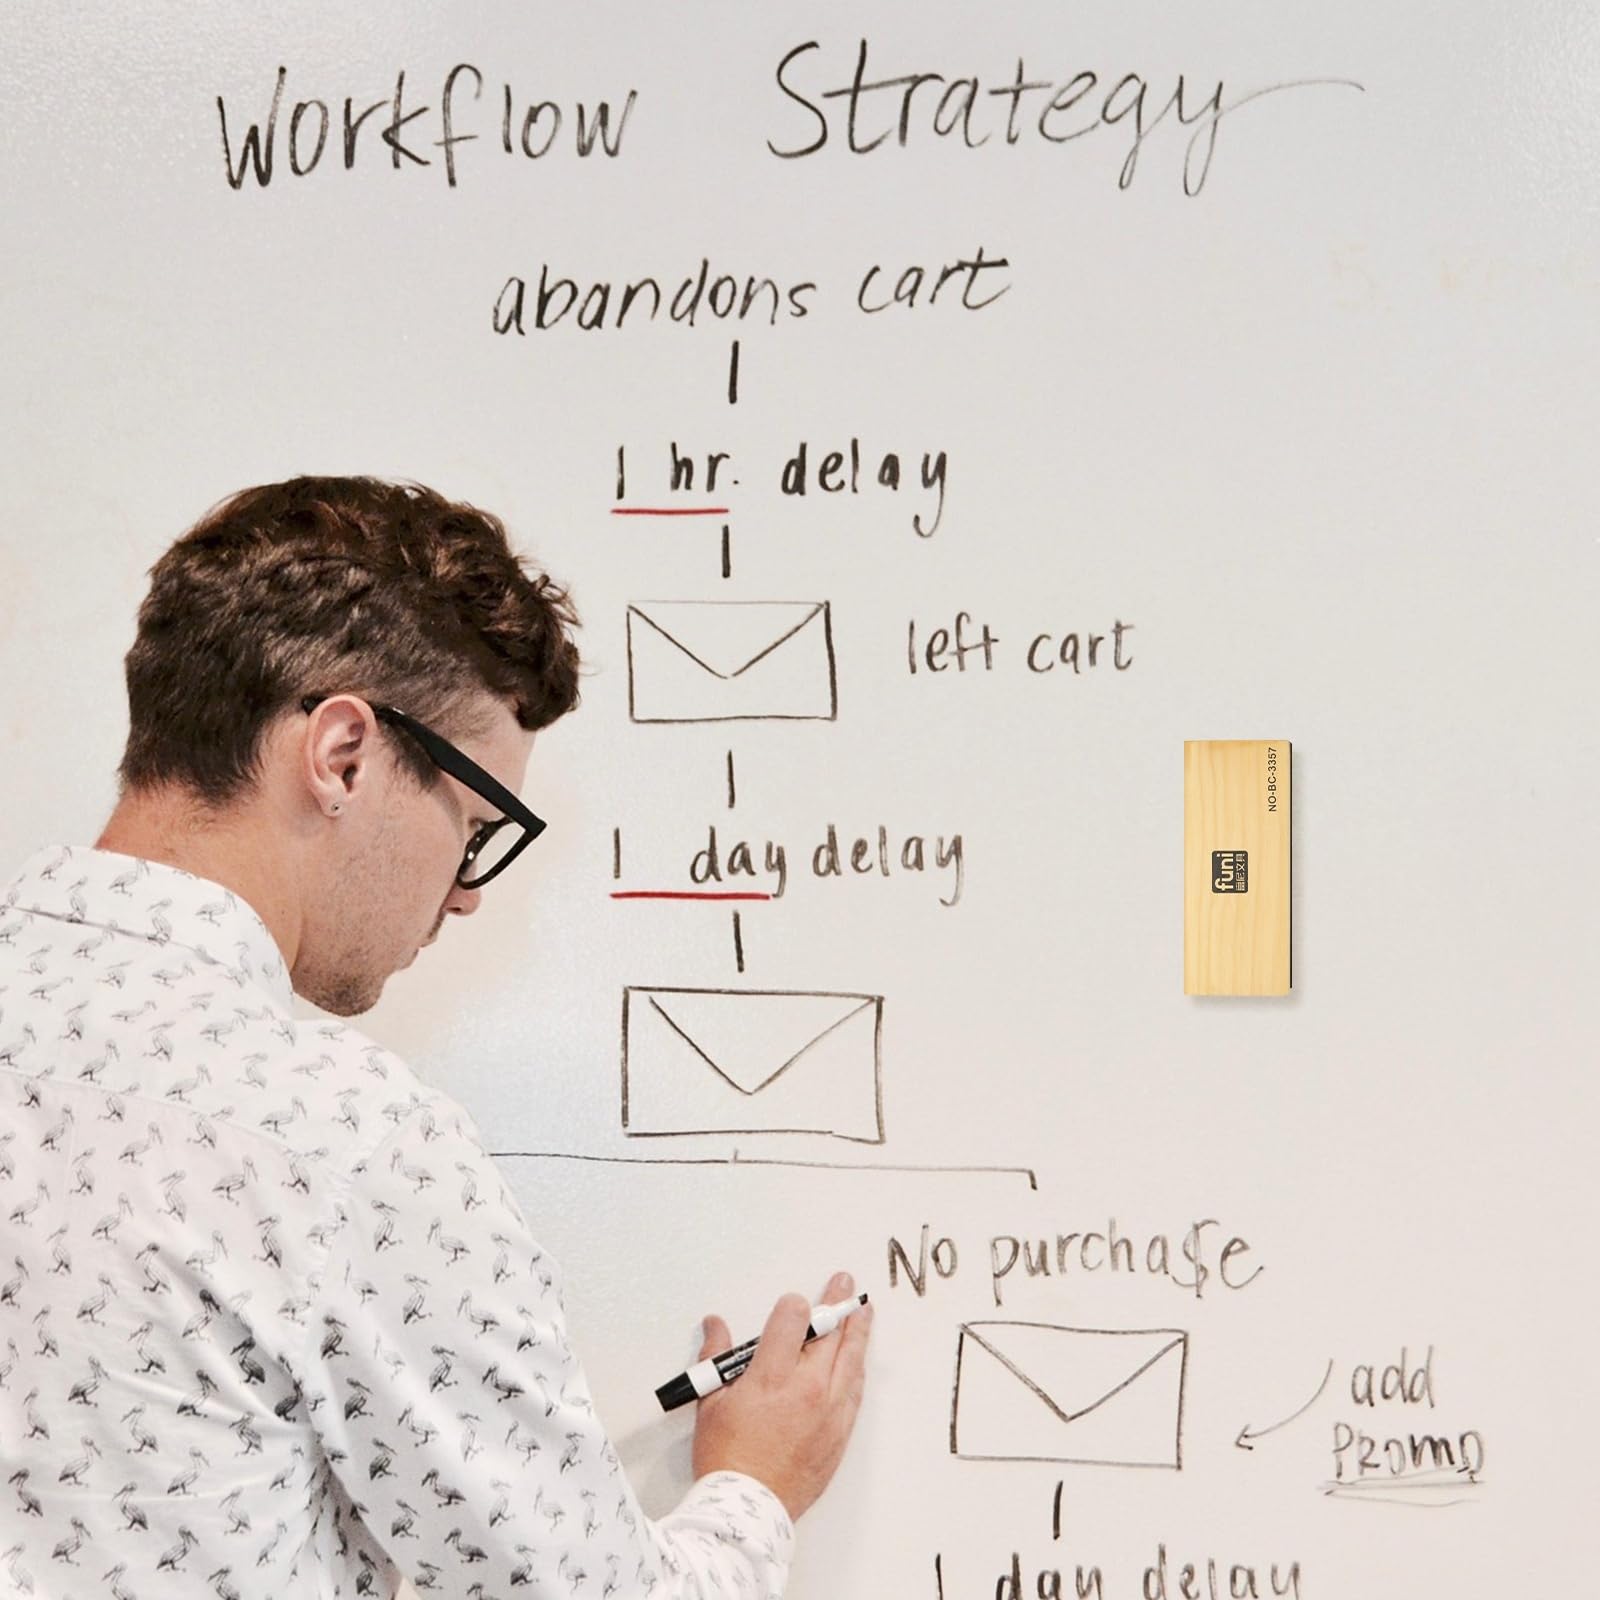 Workflow Strategy
abandons cart
1 hr. delay
left cart
NO-BC-3357
funi
富尼文具
1 day delay
No purcha$e
add
PROMO
1 day delay